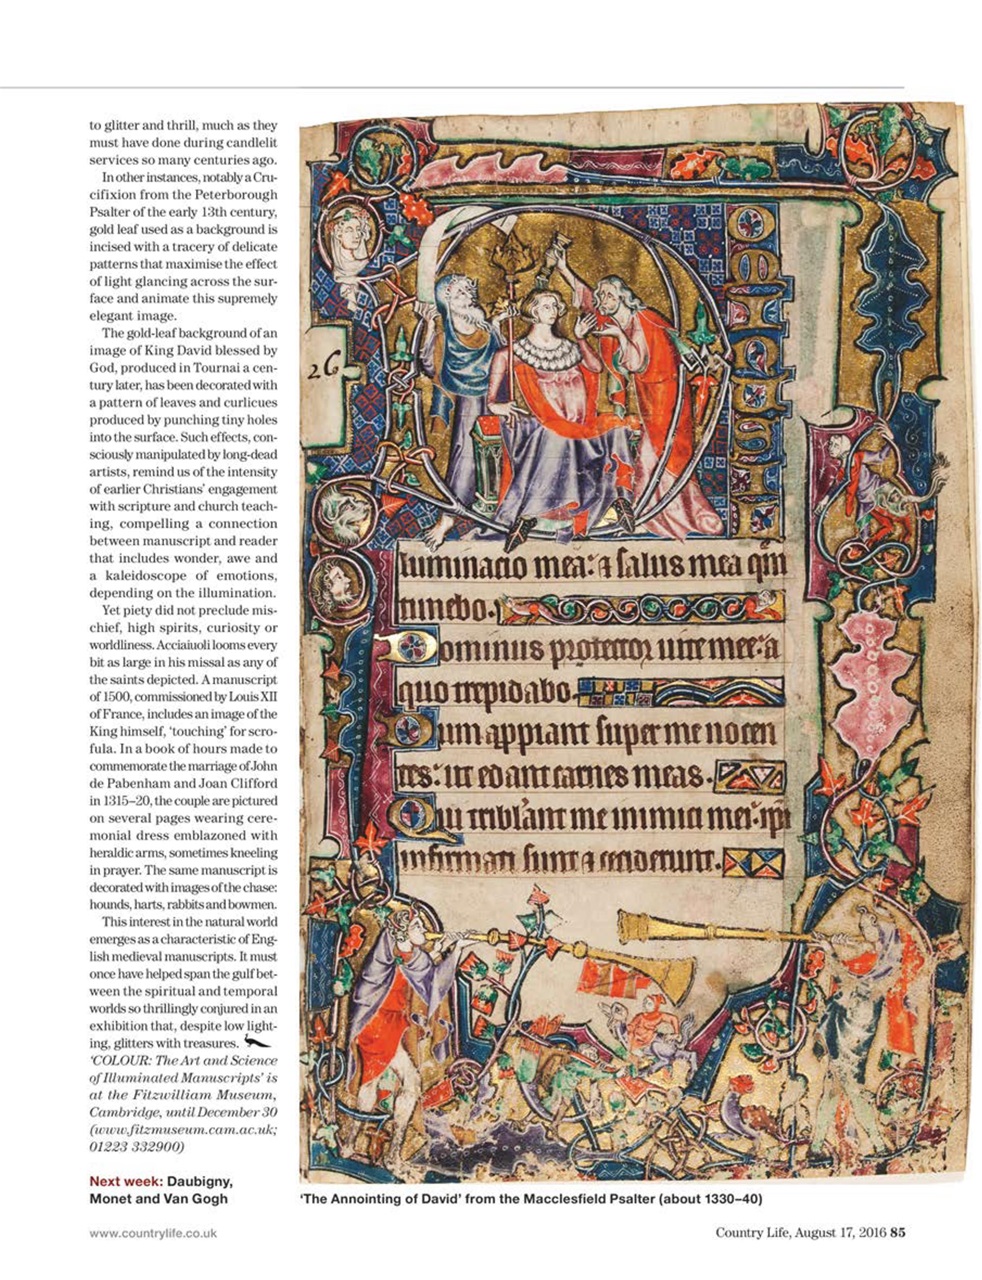 to glitter and thrill, much as they
must have done during candlelit
services so many centuries ago.
In other instances, notably a Cru-
cifixion from the Peterborough
Psalter of the early 13th century,
gold leaf used as a background is
incised with a tracery of delicate
patterns that maximise the effect
of light glancing across the sur-
face and animate this supremely
elegant image.
The gold-leaf background of an
image of King David blessed by
God, produced in Tournai a cen-
tury later, has been decorated with
a pattern of leaves and curlicues
produced by punching tiny holes
into the surface. Such effects, con-
sciously manipulated by long-dead
artists, remind us of the intensity
of earlier Christians' engagement
with scripture and church teach-
ing, compelling a connection
between manuscript and reader
that includes wonder, awe and
a kaleidoscope of emotions,
depending on the illumination.
Yet piety did not preclude mis-
chief, high spirits, curiosity or
worldliness. Acciaiuoli looms every
bit as large in his missal as any of
the saints depicted. A manuscript
of 1500, commissioned by Louis XII
of France, includes an image of the
King himself, 'touching' for scro-
fula. In a book of hours made to
commemorate the marriage of John
de Pabenham and Joan Clifford
in 1315–20, the couple are pictured
on several pages wearing cere-
monial dress emblazoned with
heraldic arms, sometimes kneeling
in prayer. The same manuscript is
decorated with images of the chase:
hounds, harts, rabbits and bowmen.
This interest in the natural world
emerges as a characteristic of Eng-
lish medieval manuscripts. It must
once have helped span the gulf bet-
ween the spiritual and temporal
worlds so thrillingly conjured in an
exhibition that, despite low light-
ing, glitters with treasures.
'COLOUR: The Art and Science
of Illuminated Manuscripts' is
at the Fitzwilliam Museum,
Cambridge, until December 30
(www.fitzmuseum.cam.ac.uk;
01223 332900)
Next week: Daubigny,
Monet and Van Gogh
26
luminacio mea: & salus mea qm
timebo.
Dominus protector uite mee: a
quo trepidabo.
Dum appiant super me nocen
tes: ut edant carnes meas.
Qui triblant me inimici mei: ipi
infirmati sunt & ceciderunt.
'The Annointing of David' from the Macclesfield Psalter (about 1330–40)
www.countrylife.co.uk
Country Life, August 17, 2016 85